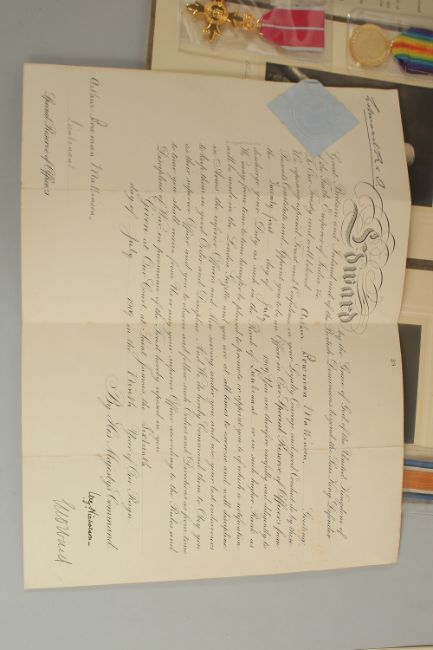 Edward R & I
Edward
by the Grace of God of the United Kingdom of
Great Britain and Ireland and of the British Dominions beyond the Seas King Defender
of the Faith, Emperor of India, &c.
To Our Trusty and well beloved Arthur Bowman Mallinson, Greeting.
We, reposing especial Trust and Confidence in your Loyalty, Courage, and good Conduct, do by these
Presents Constitute and Appoint you to be an Officer in Our Special Reserve of Officers from
the Twenty first day of July 1909. You are therefore carefully and diligently to
discharge your Duty as such in the Rank of Lieutenant or in such higher Rank as
We may from time to time hereafter be pleased to promote or appoint you to, of which a notification
will be made in the London Gazette, and you are at all times to exercise and well discipline
in Arms the inferior Officers and Men serving under you and use your best endeavours
to keep them in good Order and Discipline. And We do hereby Command them to Obey you
as their superior Officer, and you to observe and follow such Orders and Directions as from time
to time you shall receive from Us, or any your superior Officer, according to the Rules and
Discipline of War, in pursuance of the Trust hereby reposed in you.
Given at Our Court, at Saint James's, the Sixteenth
day of July 1909 in the Ninth Year of Our Reign
By His Majesty's Command
Arthur Bowman Mallinson,
Lieutenant
Special Reserve of Officers